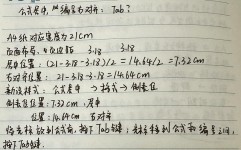 公式居中,编号右对齐: Tab?
A4纸对应宽度为21cm
页面布局,左右边距 3.18 3.18
居中位置: (21-3.18-3.18)/2 = 14.64/2 = 7.32cm
右对齐位置: (21-3.18-3.18) = 14.64cm
新建样式: 公式 → 格式 → 制表位
制表位位置: 7.32cm 居中
位置: 14.64cm 右对齐
将光标放到公式前,按下Tab键; 光标移到公式和编号之间,
按下Tab键.